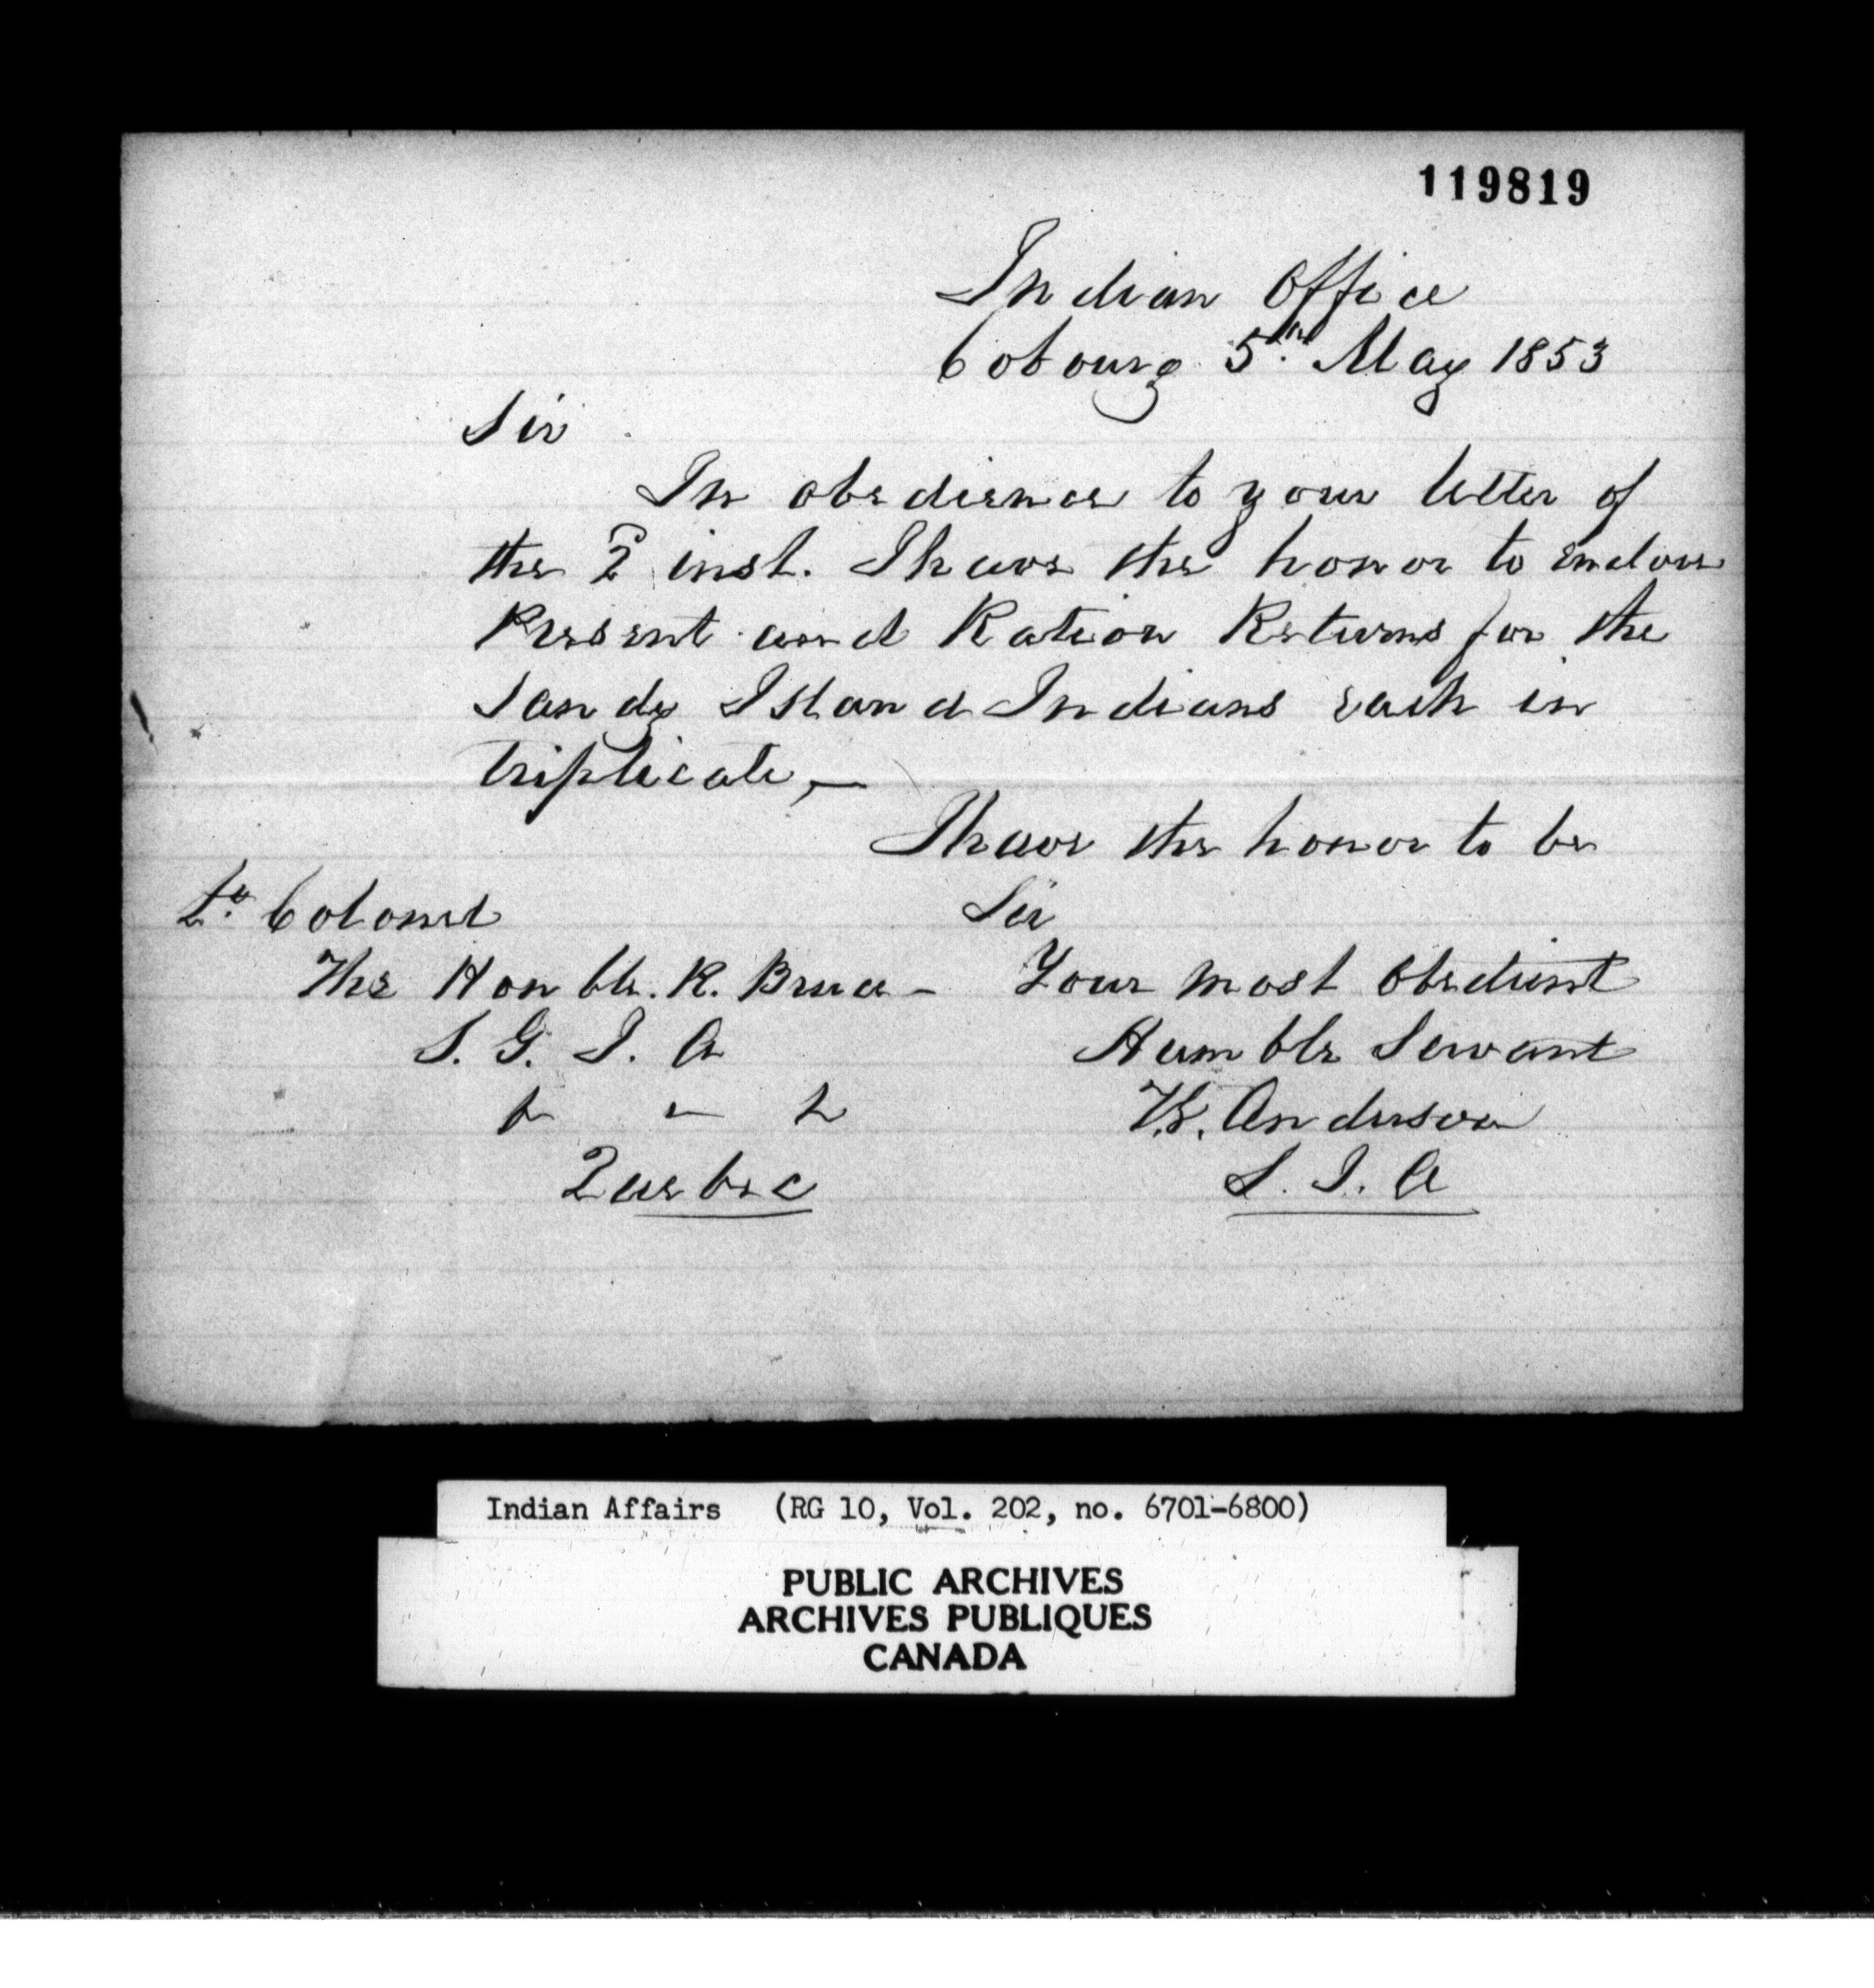 119819
Indian Office
Cobourg 5th May 1853
Sir
In obedience to your letter of
the 2 inst. I have the honor to enclose
Present and Ration Returns for the
Sandy Island Indians each in
triplicate,—
I have the honor to be
Lt. Colonel Sir
The Honble. R. Bruce - Your most Obedient
S. G. I. A Humble Servant
T. G. Anderson
Quebec S. I. A
Indian Affairs (RG 10, Vol. 202, no. 6701-6800)
PUBLIC ARCHIVES
ARCHIVES PUBLIQUES
CANADA